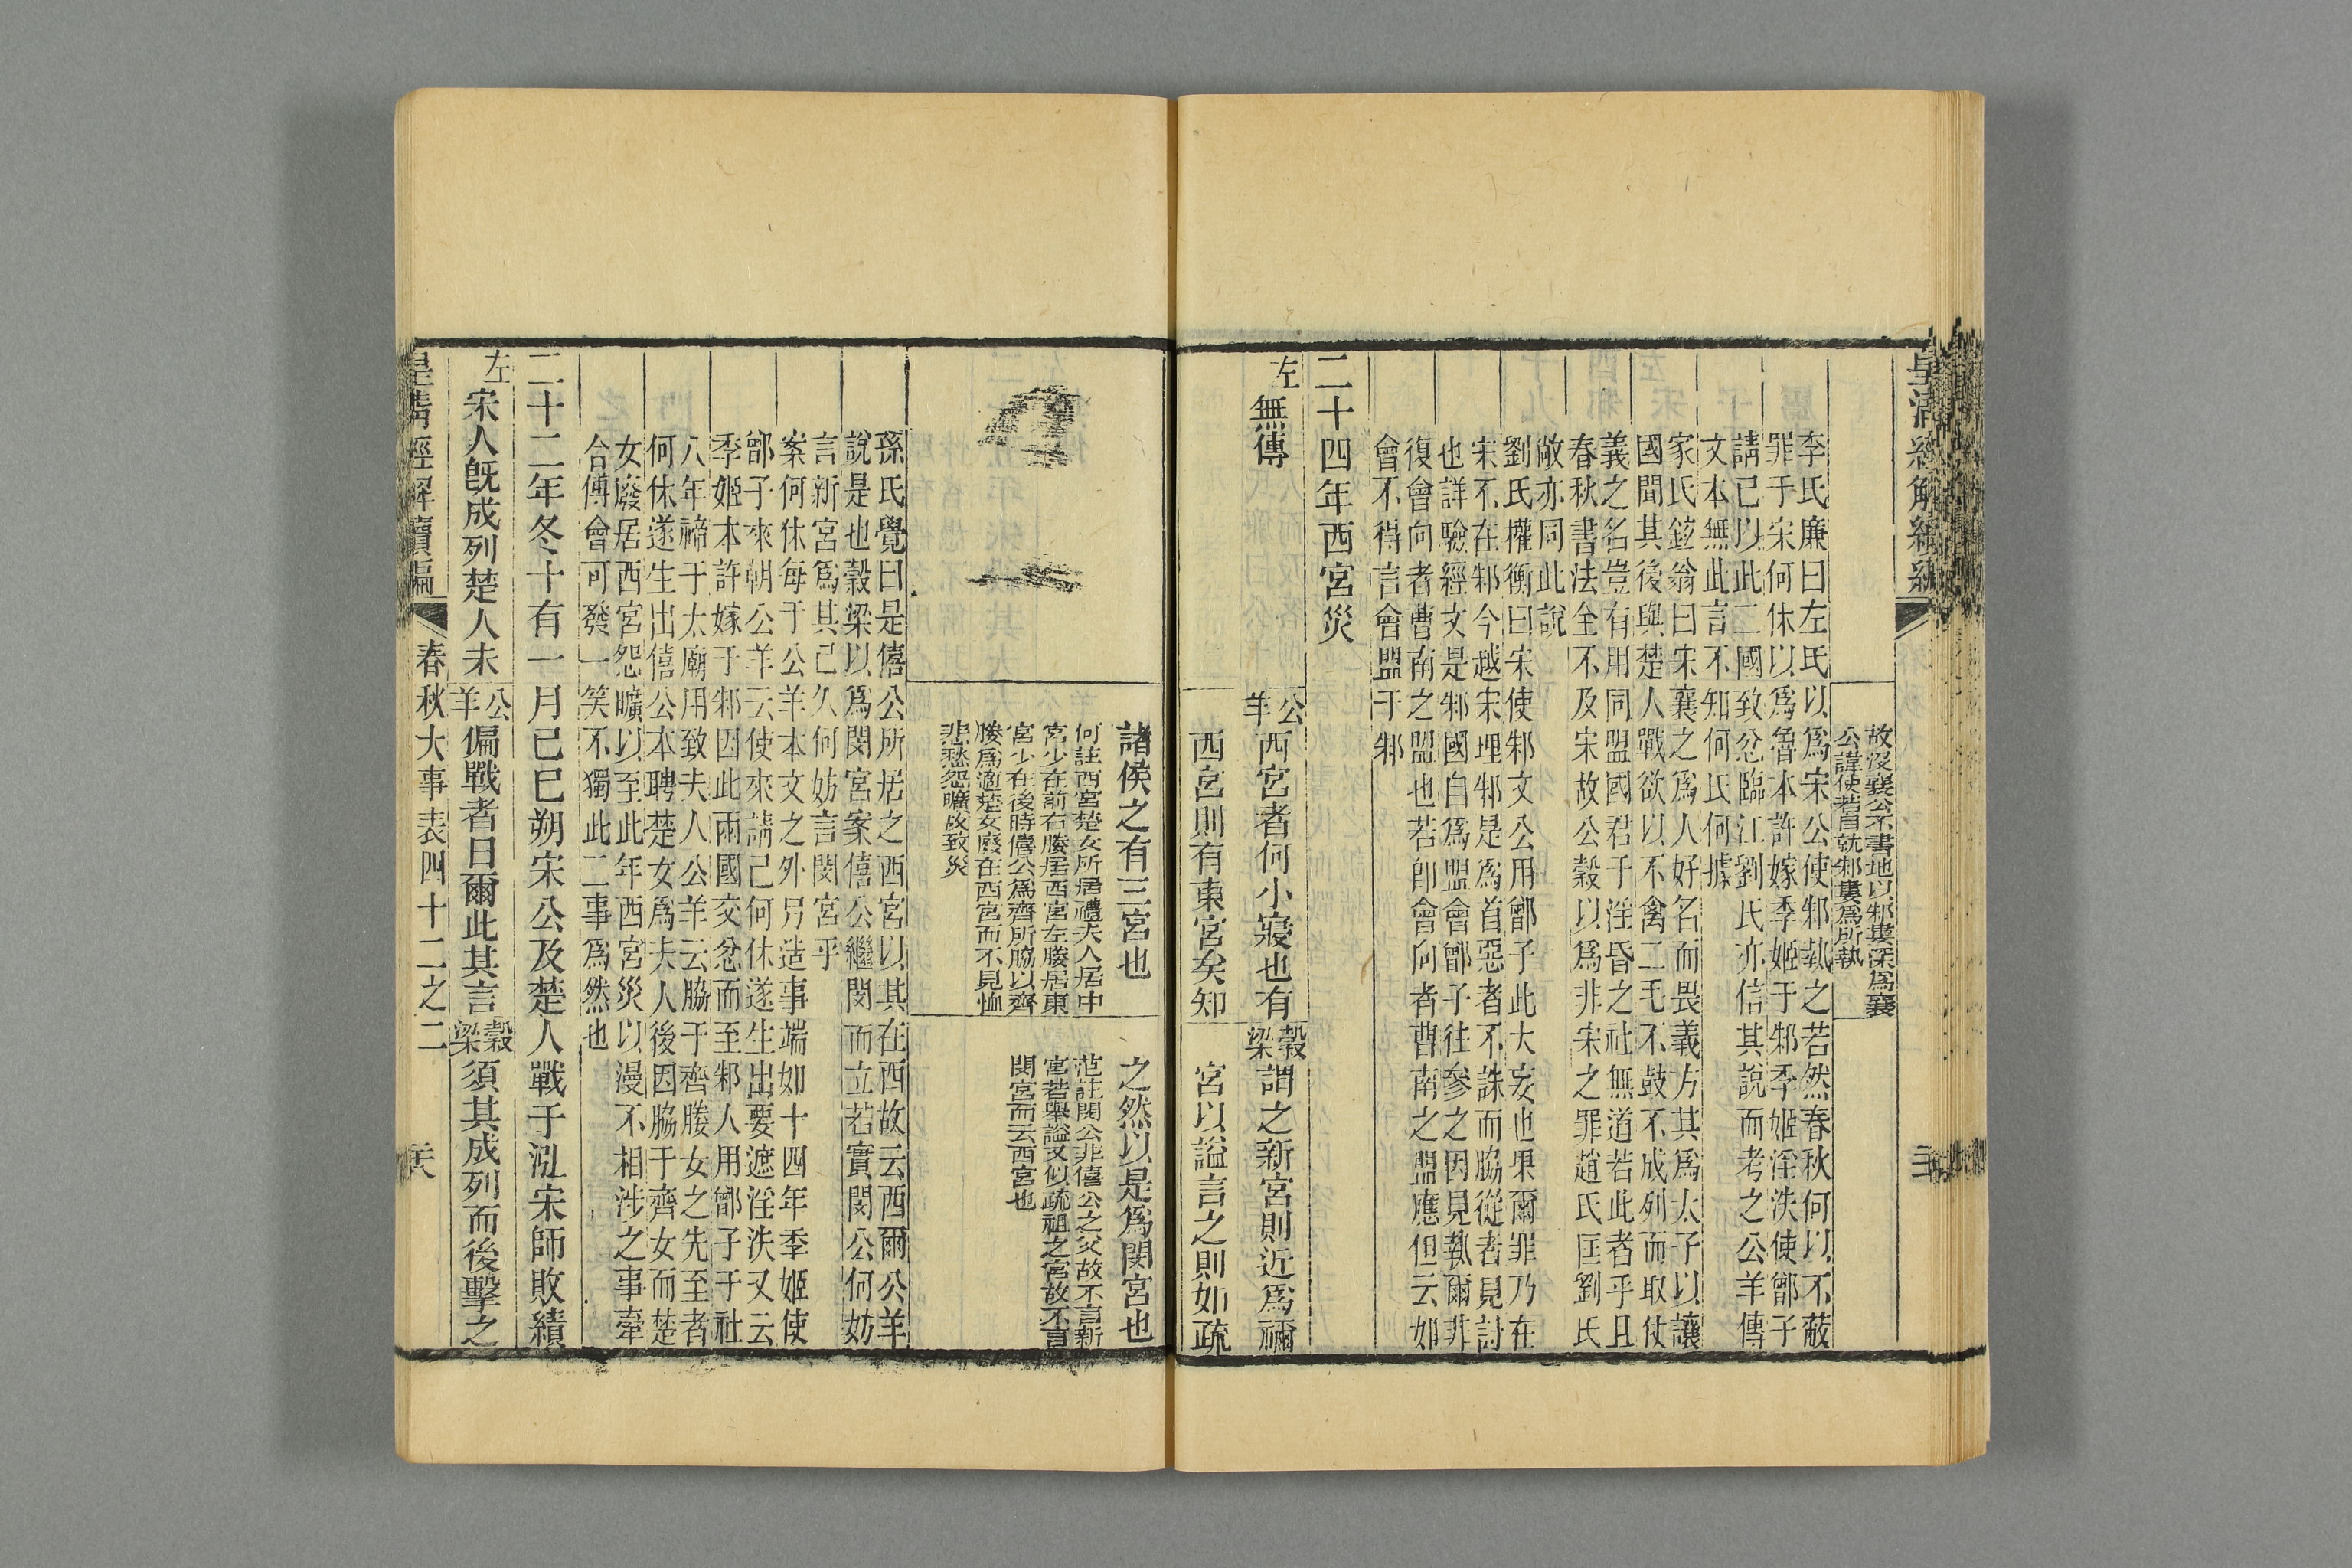 皇清經解續編
故沒襄公不書地以邾婁深爲襄
公諱使若自就邾婁爲所執
李氏廉曰左氏以爲宋公使邾執之若然春秋何以不蔽
罪于宋何休以爲魯本許嫁季姬于邾季姬淫泆使鄫子
請已以此二國致忿臨江劉氏亦信其說而考之公羊傳
文本無此言不知何氏何據
家氏鉉翁曰宋襄之爲人好名而畏義方其爲太子以讓
國聞其後與楚人戰欲以不禽二毛不鼓不成列而取仗
義之名豈有用同盟國君于淫昏之社無道若此者乎且
春秋書法全不及宋故公穀以爲非宋之罪趙氏匡劉氏
敞亦同此說
劉氏權衡曰宋使邾文公用鄫子此大妄也果爾罪乃在
宋不在邾今越宋埋邾是爲首惡者不誅而脇從者見討
也詳驗經文是邾國自爲盟會鄫子往參之因見執爾非
復會向者曹南之盟也若卽會向者曹南之盟應但云如
會不得言會盟于邾
二十四年西宮災
左
無傳
公羊
西宮者何小寢也有
西宮則有東宮矣知
穀梁
謂之新宮則近爲禰
宮以謚言之則如疏
諸侯之有三宮也
何註西宮楚女所居禮夫人居中
宮少在前右媵居西宮左媵居東
宮少在後時僖公爲齊所脇以齊
媵爲適楚女廢在西宮而不見恤
悲愁怨曠故致災
之然以是爲閔宮也
范註閔公非僖公之父故不言新
宮若舉謚又似疏祖之宮故不言
閔宮而云西宮也
孫氏覺曰是僖公所居之西宮以其在西故云西爾公羊
說是也穀梁以爲閔宮案僖公繼閔而立若實閔公何妨
言新宮爲其已久何妨言閔宮乎
案何休每于公羊本文之外另造事端如十四年季姬使
鄫子來朝公羊云使來請己何休遂生出要遮淫泆又云
季姬本許嫁于邾因此兩國交忿而至邾人用鄫子于社
八年禘于太廟用致夫人公羊云脇于齊媵女之先至者
何休遂生出僖公本聘楚女爲夫人後因脇于齊女而楚
女廢居西宮怨曠以至此年西宮災以漫不相涉之事牽
合傅會可發一笑不獨此二事爲然也
二十二年冬十有一月己巳朔宋公及楚人戰于泓宋師敗績
左
宋人旣成列楚人未
公羊
偏戰者日爾此其言
穀梁
須其成列而後擊之
皇清經解續編
春秋大事表四十二之二